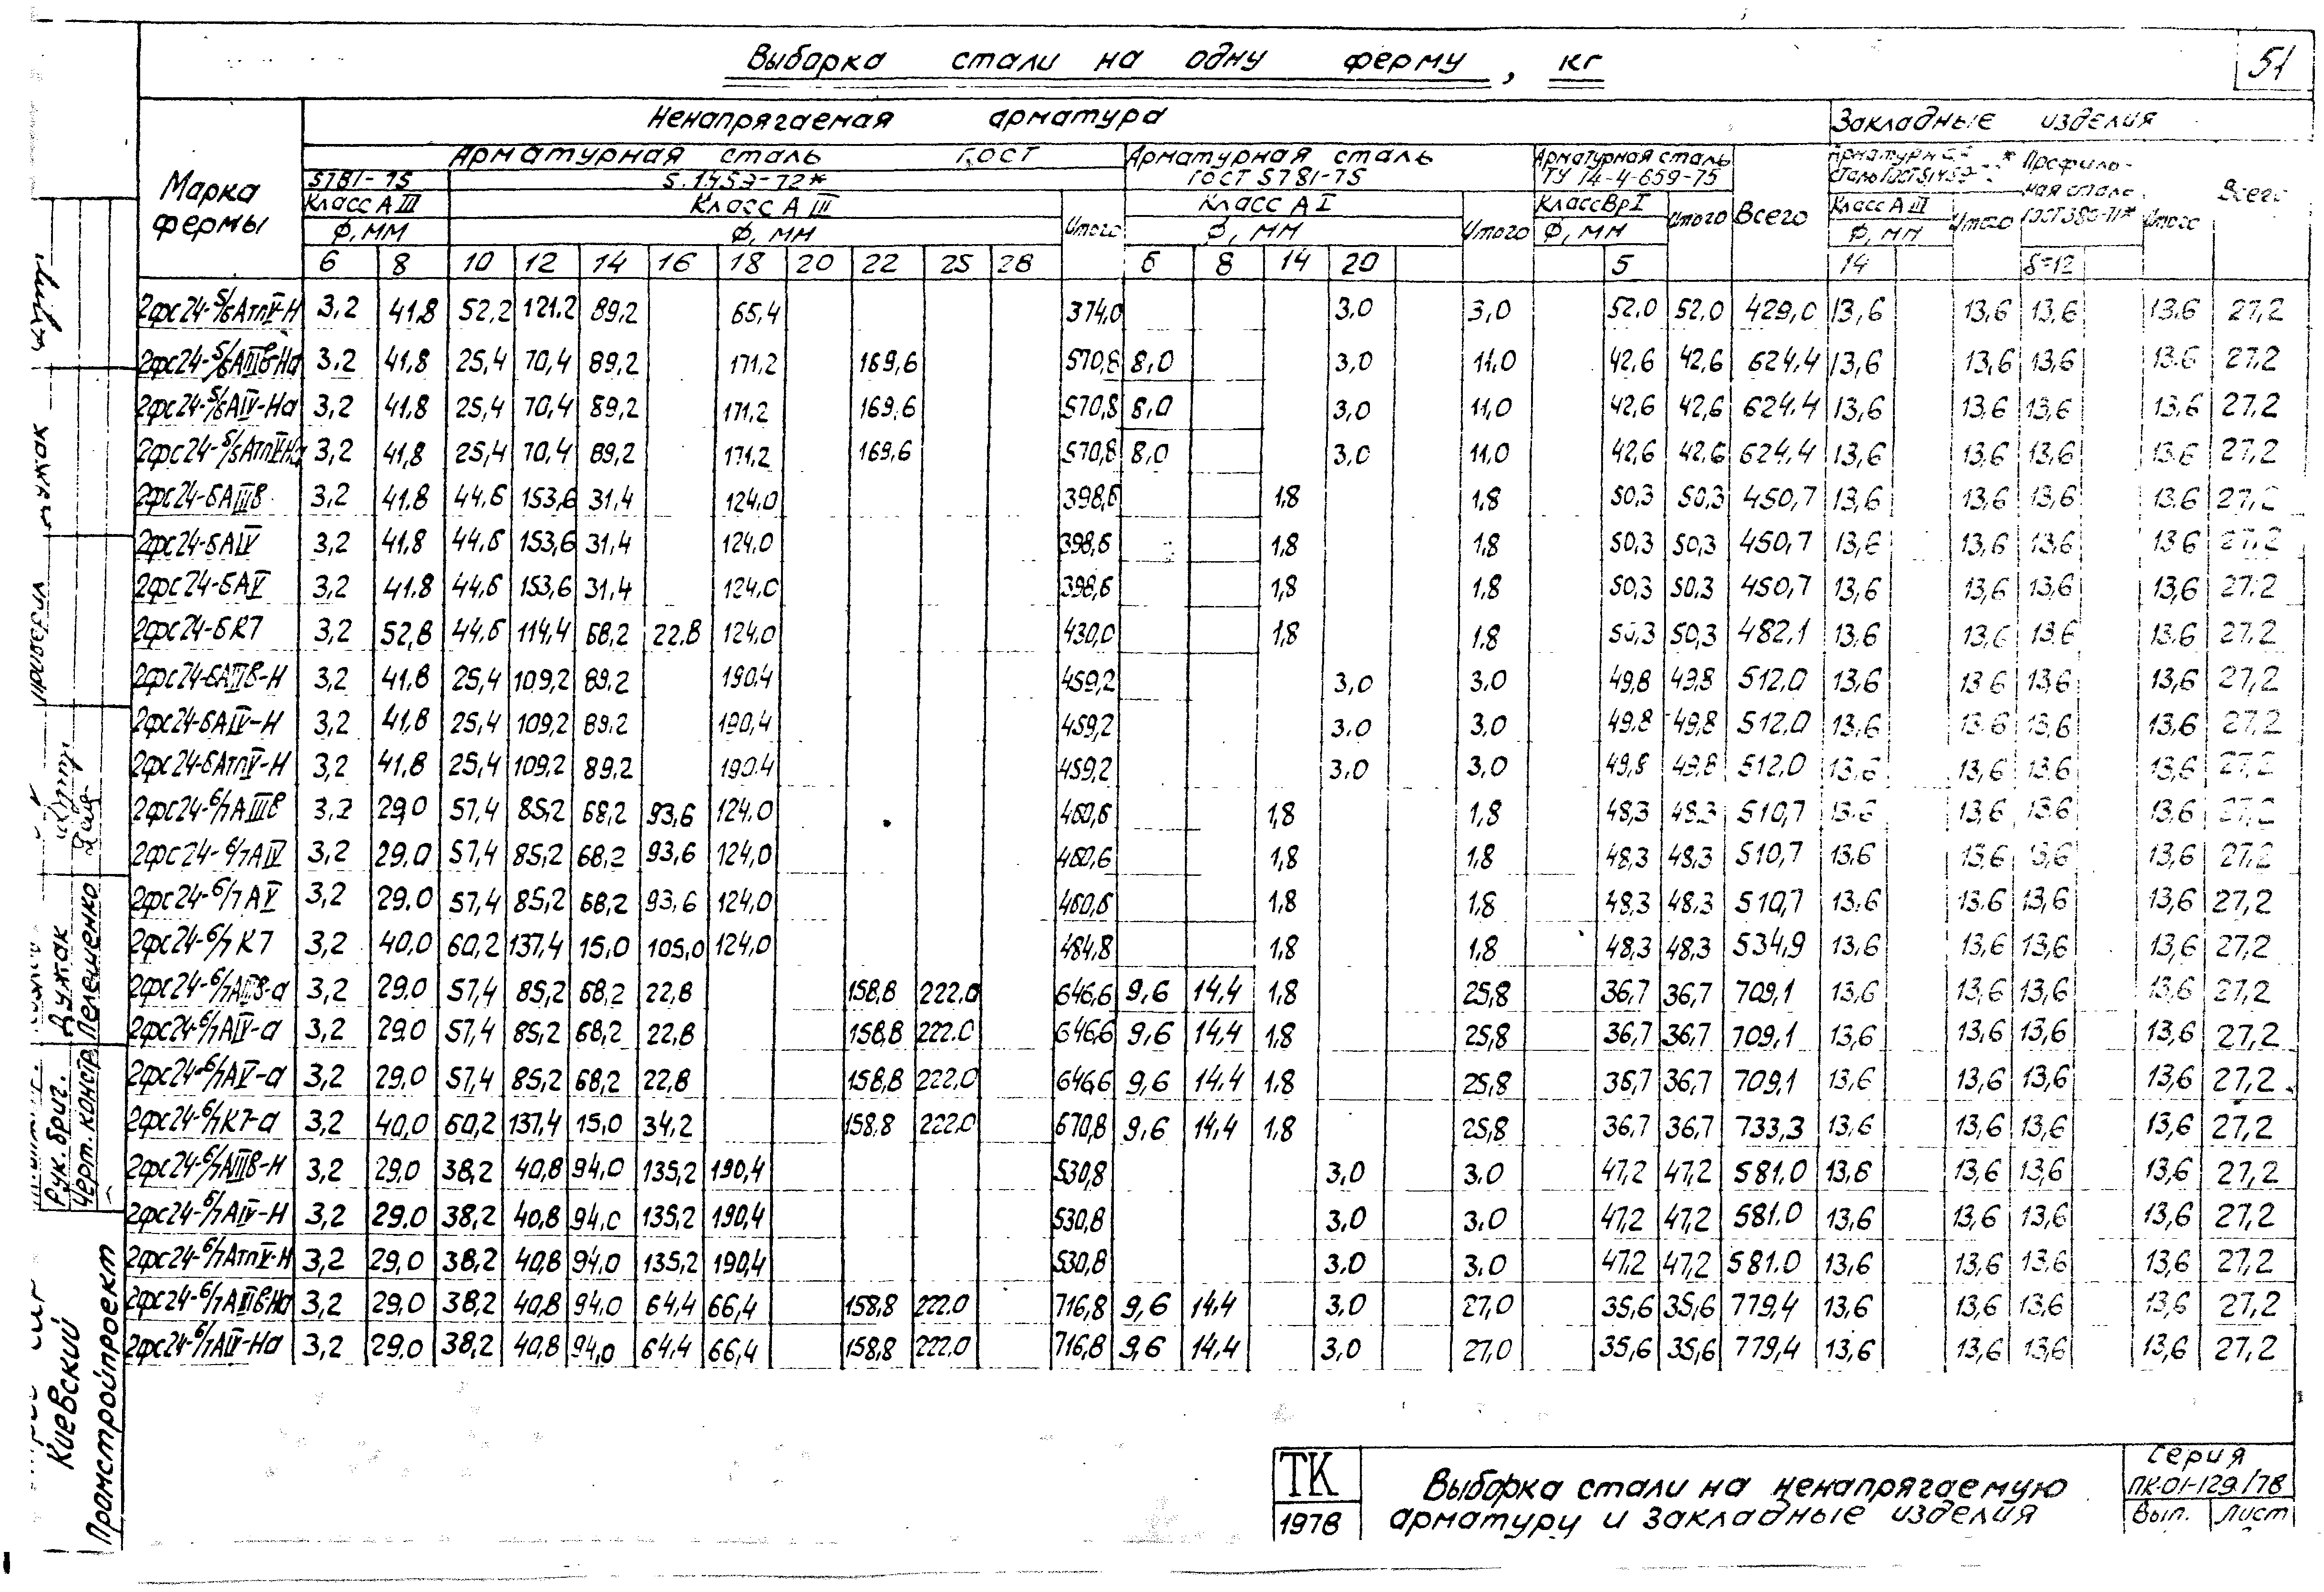 Выборка стали на одну ферму, кг
51
Марка фермы
Ненапрягаемая арматура
Закладные изделия
Арматурная сталь ГОСТ
Арматурная сталь ГОСТ 5781-75
Арматурная сталь ТУ 14-4-659-75
Всего
Профильная сталь ГОСТ 380-71*
Всего
5781-75
5.1459-72*
Класс А III
Класс А III
Итого
Класс А I
Итого
Класс Вр I
Итого
Класс А III
Итого
Итого
Ф, мм
Ф, мм
Ф, мм
Ф, мм
Ф, мм
6 8 10 12 14 16 18 20 22 25 28 6 8 14 20 5 14 δ=12
2фс24-5/6АтпV-Н 3,2 41,8 52,2 121,2 89,2 65,4 374,0 3,0 3,0 52,0 52,0 429,0 13,6 13,6 13,6 13,6 27,2
2фс24-5/6АIIIв-На 3,2 41,8 25,4 70,4 89,2 171,2 169,6 570,8 8,0 3,0 11,0 42,6 42,6 624,4 13,6 13,6 13,6 13,6 27,2
2фс24-5/6АIV-На 3,2 41,8 25,4 70,4 89,2 171,2 169,6 570,8 8,0 3,0 11,0 42,6 42,6 624,4 13,6 13,6 13,6 13,6 27,2
2фс24-5/6АтпV-На 3,2 41,8 25,4 70,4 89,2 171,2 169,6 570,8 8,0 3,0 11,0 42,6 42,6 624,4 13,6 13,6 13,6 13,6 27,2
2фс24-6АIIIв 3,2 41,8 44,6 153,6 31,4 124,0 398,6 1,8 1,8 50,3 50,3 450,7 13,6 13,6 13,6 13,6 27,2
2фс24-6АIV 3,2 41,8 44,6 153,6 31,4 124,0 398,6 1,8 1,8 50,3 50,3 450,7 13,6 13,6 13,6 13,6 27,2
2фс24-6АV 3,2 41,8 44,6 153,6 31,4 124,0 398,6 1,8 1,8 50,3 50,3 450,7 13,6 13,6 13,6 13,6 27,2
2фс24-6К7 3,2 52,8 44,6 114,4 68,2 22,8 124,0 430,0 1,8 1,8 50,3 50,3 482,1 13,6 13,6 13,6 13,6 27,2
2фс24-6АIIIв-Н 3,2 41,8 25,4 109,2 89,2 190,4 459,2 3,0 3,0 49,8 49,8 512,0 13,6 13,6 13,6 13,6 27,2
2фс24-6АIV-Н 3,2 41,8 25,4 109,2 89,2 190,4 459,2 3,0 3,0 49,8 49,8 512,0 13,6 13,6 13,6 13,6 27,2
2фс24-6АтпV-Н 3,2 41,8 25,4 109,2 89,2 190,4 459,2 3,0 3,0 49,8 49,8 512,0 13,6 13,6 13,6 13,6 27,2
2фс24-6/7АIIIв 3,2 29,0 57,4 85,2 68,2 93,6 124,0 460,6 1,8 1,8 48,3 48,3 510,7 13,6 13,6 13,6 13,6 27,2
2фс24-6/7АIV 3,2 29,0 57,4 85,2 68,2 93,6 124,0 460,6 1,8 1,8 48,3 48,3 510,7 13,6 13,6 13,6 13,6 27,2
2фс24-6/7АV 3,2 29,0 57,4 85,2 68,2 93,6 124,0 460,6 1,8 1,8 48,3 48,3 510,7 13,6 13,6 13,6 13,6 27,2
2фс24-6/7К7 3,2 40,0 60,2 137,4 15,0 105,0 124,0 484,8 1,8 1,8 48,3 48,3 534,9 13,6 13,6 13,6 13,6 27,2
2фс24-6/7АIIIв-а 3,2 29,0 57,4 85,2 68,2 22,8 158,8 222,0 646,6 9,6 14,4 1,8 25,8 36,7 36,7 709,1 13,6 13,6 13,6 13,6 27,2
2фс24-6/7АIV-а 3,2 29,0 57,4 85,2 68,2 22,8 158,8 222,0 646,6 9,6 14,4 1,8 25,8 36,7 36,7 709,1 13,6 13,6 13,6 13,6 27,2
2фс24-6/7АV-а 3,2 29,0 57,4 85,2 68,2 22,8 158,8 222,0 646,6 9,6 14,4 1,8 25,8 36,7 36,7 709,1 13,6 13,6 13,6 13,6 27,2
2фс24-6/7К7-а 3,2 40,0 60,2 137,4 15,0 34,2 158,8 222,0 670,8 9,6 14,4 1,8 25,8 36,7 36,7 733,3 13,6 13,6 13,6 13,6 27,2
2фс24-6/7АIIIв-Н 3,2 29,0 38,2 40,8 94,0 135,2 190,4 530,8 3,0 3,0 47,2 47,2 581,0 13,6 13,6 13,6 13,6 27,2
2фс24-6/7АIV-Н 3,2 29,0 38,2 40,8 94,0 135,2 190,4 530,8 3,0 3,0 47,2 47,2 581,0 13,6 13,6 13,6 13,6 27,2
2фс24-6/7АтпV-Н 3,2 29,0 38,2 40,8 94,0 135,2 190,4 530,8 3,0 3,0 47,2 47,2 581,0 13,6 13,6 13,6 13,6 27,2
2фс24-6/7АIIIв-На 3,2 29,0 38,2 40,8 94,0 64,4 66,4 158,8 222,0 716,8 9,6 14,4 3,0 27,0 35,6 35,6 779,4 13,6 13,6 13,6 13,6 27,2
2фс24-6/7АIV-На 3,2 29,0 38,2 40,8 94,0 64,4 66,4 158,8 222,0 716,8 9,6 14,4 3,0 27,0 35,6 35,6 779,4 13,6 13,6 13,6 13,6 27,2
Рук. бриг. Дужак
Черт. констр. Пелешенко
Киевский
Промстройпроект
ТК
1978
Выборка стали на ненапрягаемую
арматуру и закладные изделия
Серия
ПК-01-129/78
Вып. Лист